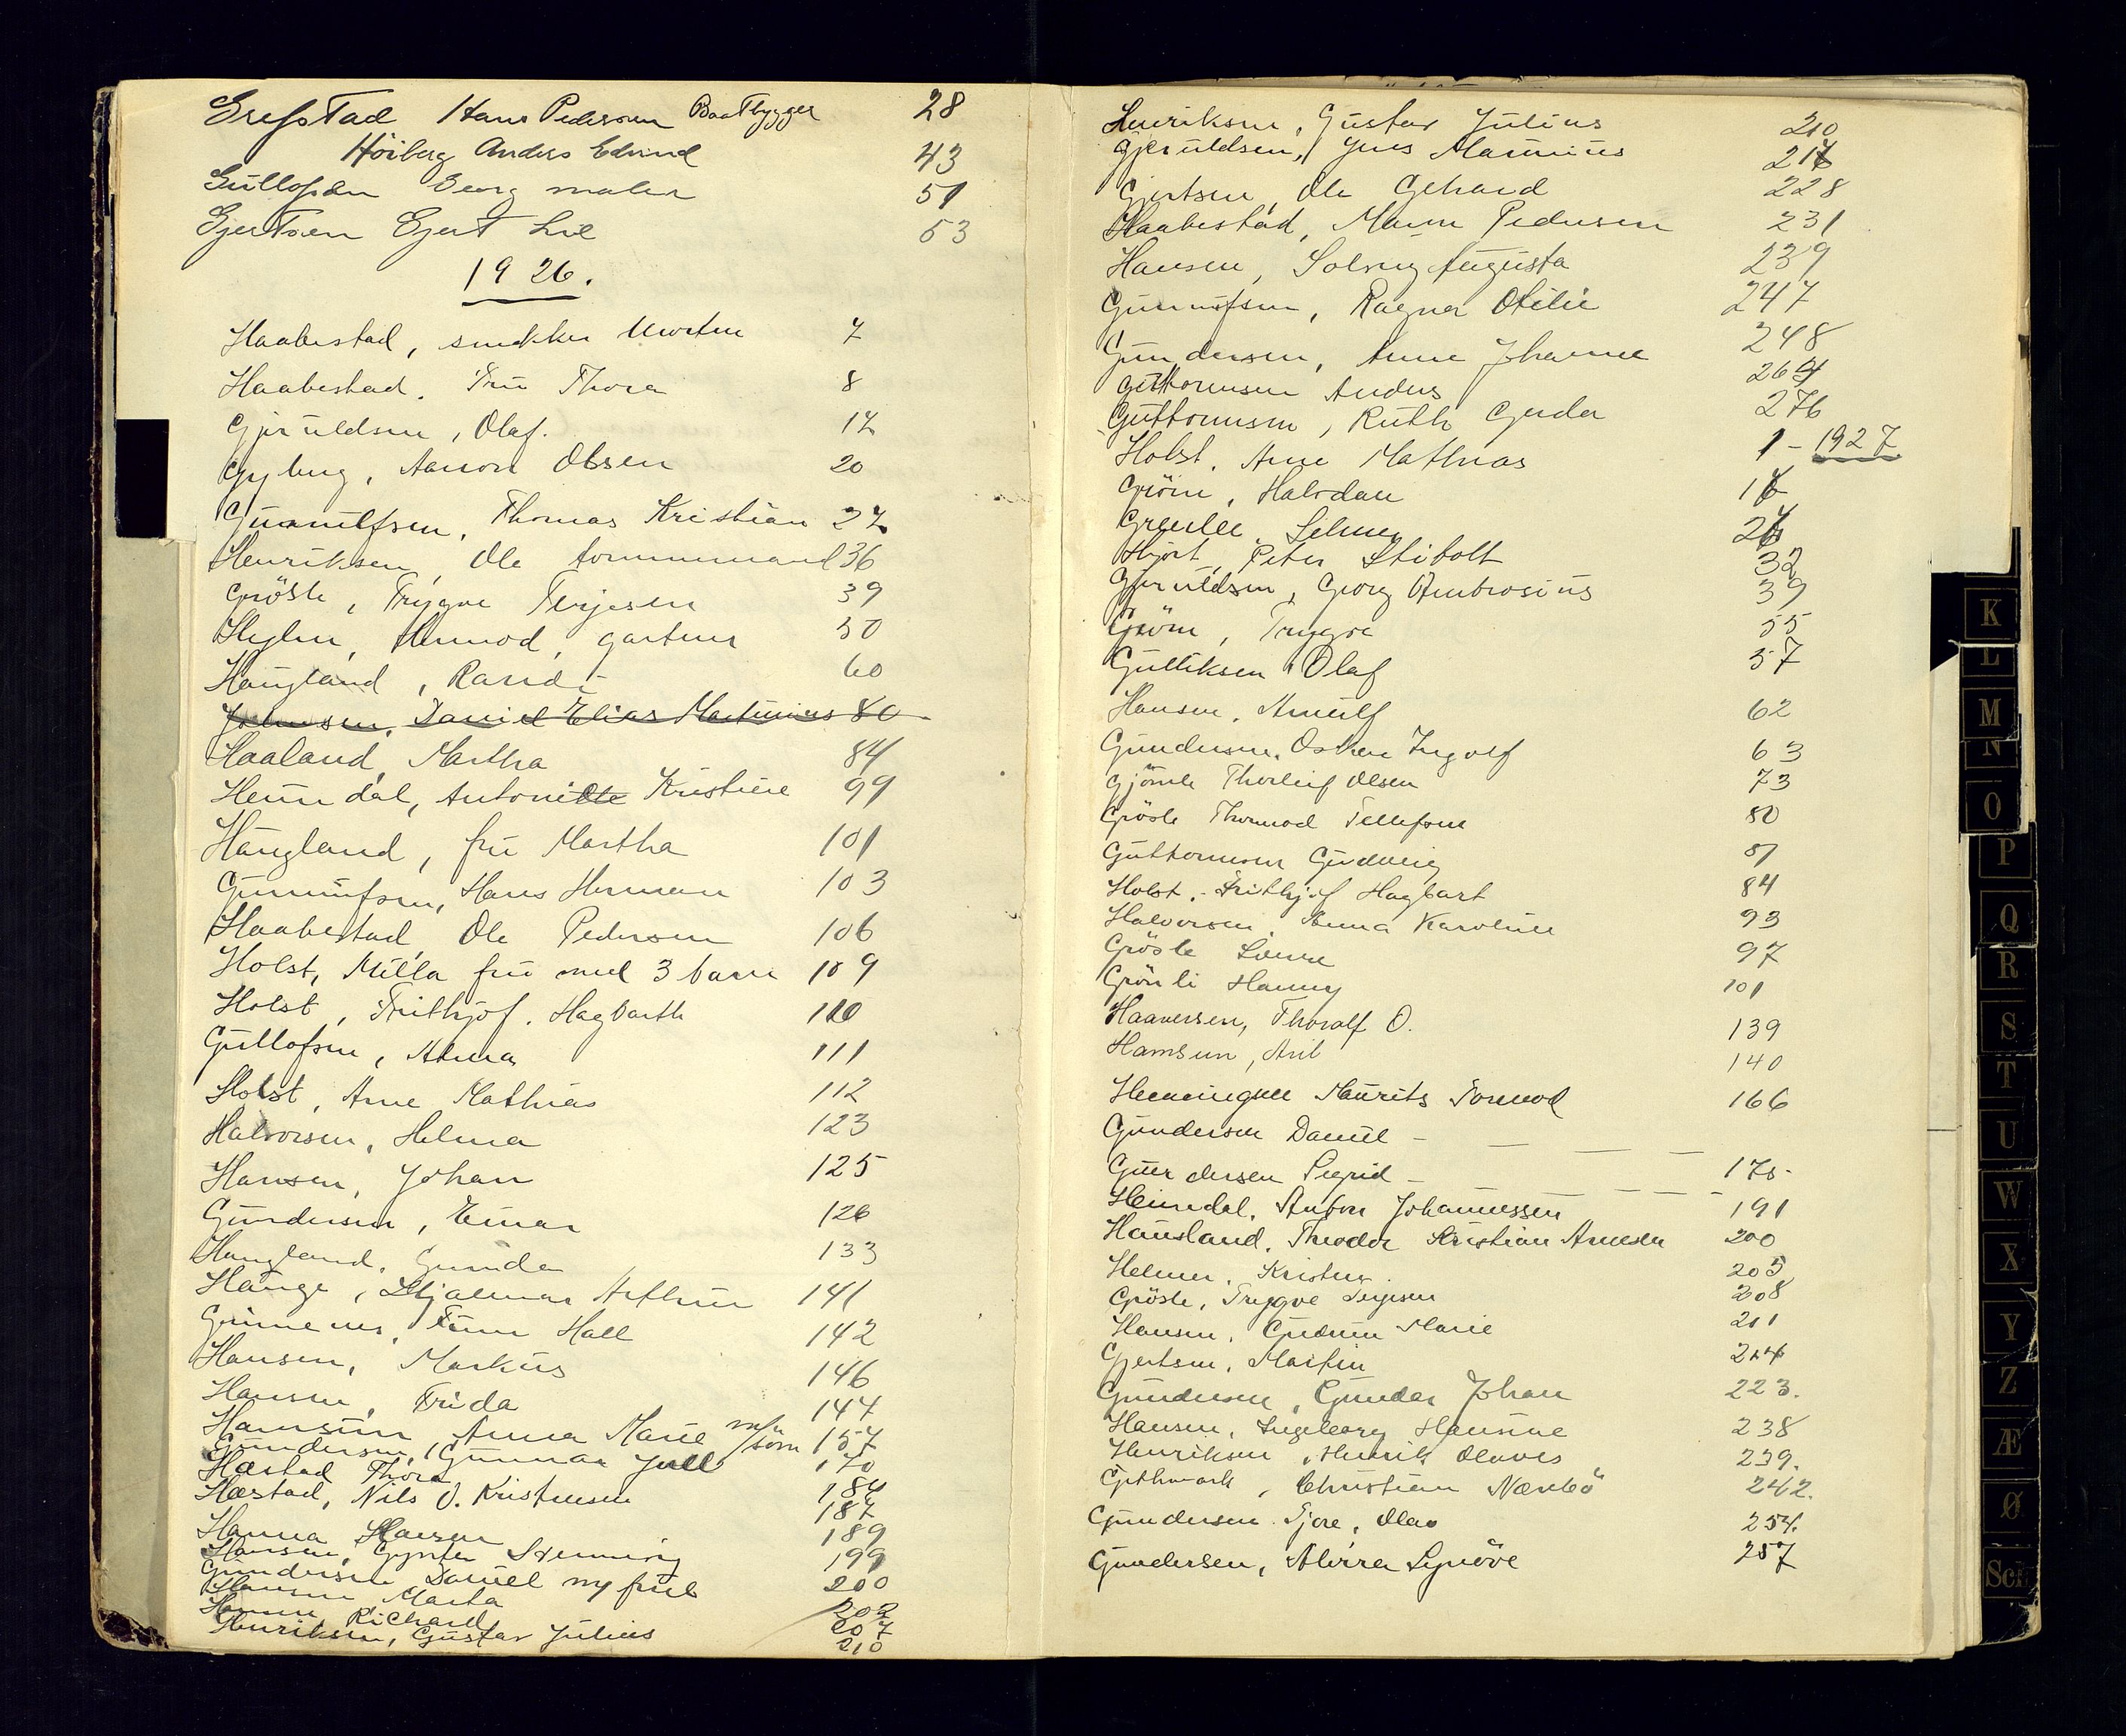 Grefstad Hans Pedersen Baatbygger 28
Höiberg Anders Edvind 43
Gullofsen Georg maler 51
Gjertsen Gjert Lie 53
1926.
Haabestad, snekker Morten 7
Haabestad. Fru Thora 8
Gjeruldsen, Olaf. 17
Gyberg, Aanon Olsen 20
Gunnulfsen, Thomas Kristian 27
Henriksen, Ole 36
Grösle, Trygve Terjesen 39
Hylen, Hermod, gartner 50
Haugland, Randi 60
Johnsen, Daniel Elias Martinius 80
Haaland, Martha 84
Heimdal, Antonette Kristine 99
Haugland, fru Martha 101
Gunnufsen, Hans Herman 103
Haabestad, Ole Pedersen 106
Holst, Milla fru med 3 barn 109
Holst, Frithjof. Hagbarth 110
Gullofsen, Alma 111
Holst, Arne Mathias 112
Halvorsen, Helma 123
Hansen, Johan 125
Gundersen, Einar 126
Haugland, Gunda 133
Hauge, Hjalmar Arthur 141
Grimenes, Finn Hall 142
Hansen, Markus 146
Hansen, Frida 147
Hamsun, Anna Marie m/sönn 157
Gundersen, Gunnar Juell 170
Hæstad Thora 184
Hæstad, Nils O. Kristensen 187
Hanna Hansen 189
Hansen, Gynter Henning 199
Gundersen Daniel m/ frue 200
Hansen Marta 202
Hansen, Richard 207
Henriksen, Gustav Julius 210
Henriksen, Gustav Julius 210
Gjeruldsen, Jens Maurius 217
Gjertsen, Ole Gehard 228
Haabestad, Maren Pedersen 231
Hansen, Solveig Augusta 239
Gunnufsen, Ragna Otilie 247
Gundersen, Anne Johanne 248
Guttormsen Anders 264
Guttormsen, Ruth Gerda 276
Holst, Arne Mathias 1 – 1927
Gröm, Halvdan 16
Grenlee, Selmer 26
Hjort, Peter Stibolt 32
Gjeruldsen, Georg Ambrosius 39
Gröm, Trygve 55
Gulliksen, Olaf 57
Hansen, Arnulf 62
Gundersen, Oskar Ingolf 63
Gjömle Thorleif Olsen 73
Grösle Thormod Tellefsen 80
Guttormsen Gudveig 81
Holst, Frithjof Hagbart 84
Halvorsen, Anna Karoline 93
Grösle 97
Grönli Hanny 101
Haaversen, Thoralf O. 139
Hamsun, Aril 140
Henningsen Maurits Formod 166
Gundersen Daniel –
Gundersen Sigrid – 175.
Heimdal, Anton Johannessen 191
Hausland, Theodor Kristian Arnesen 200
Helmer, Kristen 205
Grösle, Trygve Terjesen 208
Hansen, Gudrun Marie 211
Gjertsen, Martin 214
Gundersen, Gunder Johan 223.
Hansen, Ingeborg Hansine 238
Henriksen, Henrik Olaves 239.
Christian Næsbö 242.
Gundersen Tjore, Olav 254.
Gundersen, Alvira Synöve 257
K
L
M
N
O
P
Q
R
S
T
U
W
X
Y
Z
Æ
Ø
Sch